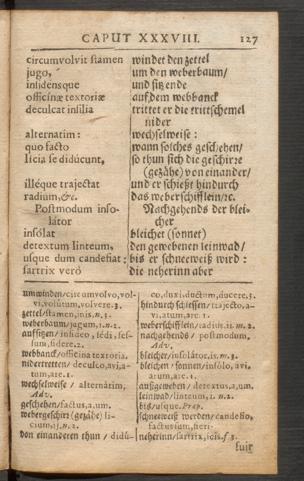 CAPUT XXXVIII. 127
circumvolvit stamen windet den zettel
jugo, um den weberbaum/
insidensque und sitzende
officinæ textoriæ auf dem webbanck
deculcat insilia trittet er die trittschemel
nider
alternatim: wechselweise:
quo facto wann solches geschehen/
licia se didúcunt, so thun sich die geschirre
(gezåhe) von einander/
illéque trajectat und er schießt hindurch
radium, &c. das weberschifflein/ꝛc.
Postmodum inso- Nachgehends der blei-
lator cher
insólat bleichet (sonnet)
detextum linteum, den gewebenen leinwad/
usque dum candefiat: bis er schneeweiß wird:
sartrix verò die neherinn aber
umwinden/circumvolvo, vol-
vi, volútum, volvere. 3.
zettel/stamen, inis. n. 3.
weberbaum/jugum, i. n. 2.
auffsitzen/insideo, sédi, ses-
sum, sidere. 2.
webbanck/officina textoria.
nidertretten/deculco, avi, a-
tum, are. 1.
wechselweise / alternàtim,
Adv.
geschehen/factus, a, um.
webergeschirr (gezåhe) li-
cium, ij. n. 2.
von einanderen thun / didú-
co, duxi, ductum, dúcere. 3.
hindurch schiessen/trajecto, a-
vi, atum, are. 1.
weberschifflein/radius, ii. m. 2.
nachgehends / postmodum,
Adv.
bleicher/insolátor, is. m. 3.
bleichen / sonnen/insólo, avi,
atum, are. 1.
außgeweben / detextus, a, um.
leinwad/linteum, i. n. 2.
biß/usque. Prep.
schneeweiß werden/candefio,
factus sum, fieri.
neherinn/sartrix, icis. f. 3.